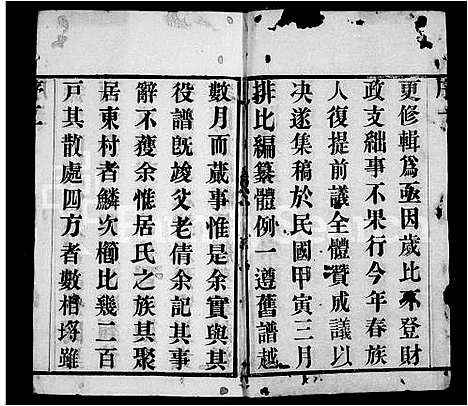 更修輯爲亟因歲比不登財
政支絀事不果行今年春族
人復提前議全體贊成議以
決遂集稿於民國甲寅三月
排比編纂體例一遵舊譜越
數月而蕆事惟是余實與其
役譜旣竣父老倩余記其事
辭不獲余惟居氏之族其聚
居東村者鱗次櫛比幾二百
戸其散處四方者數相埒雖